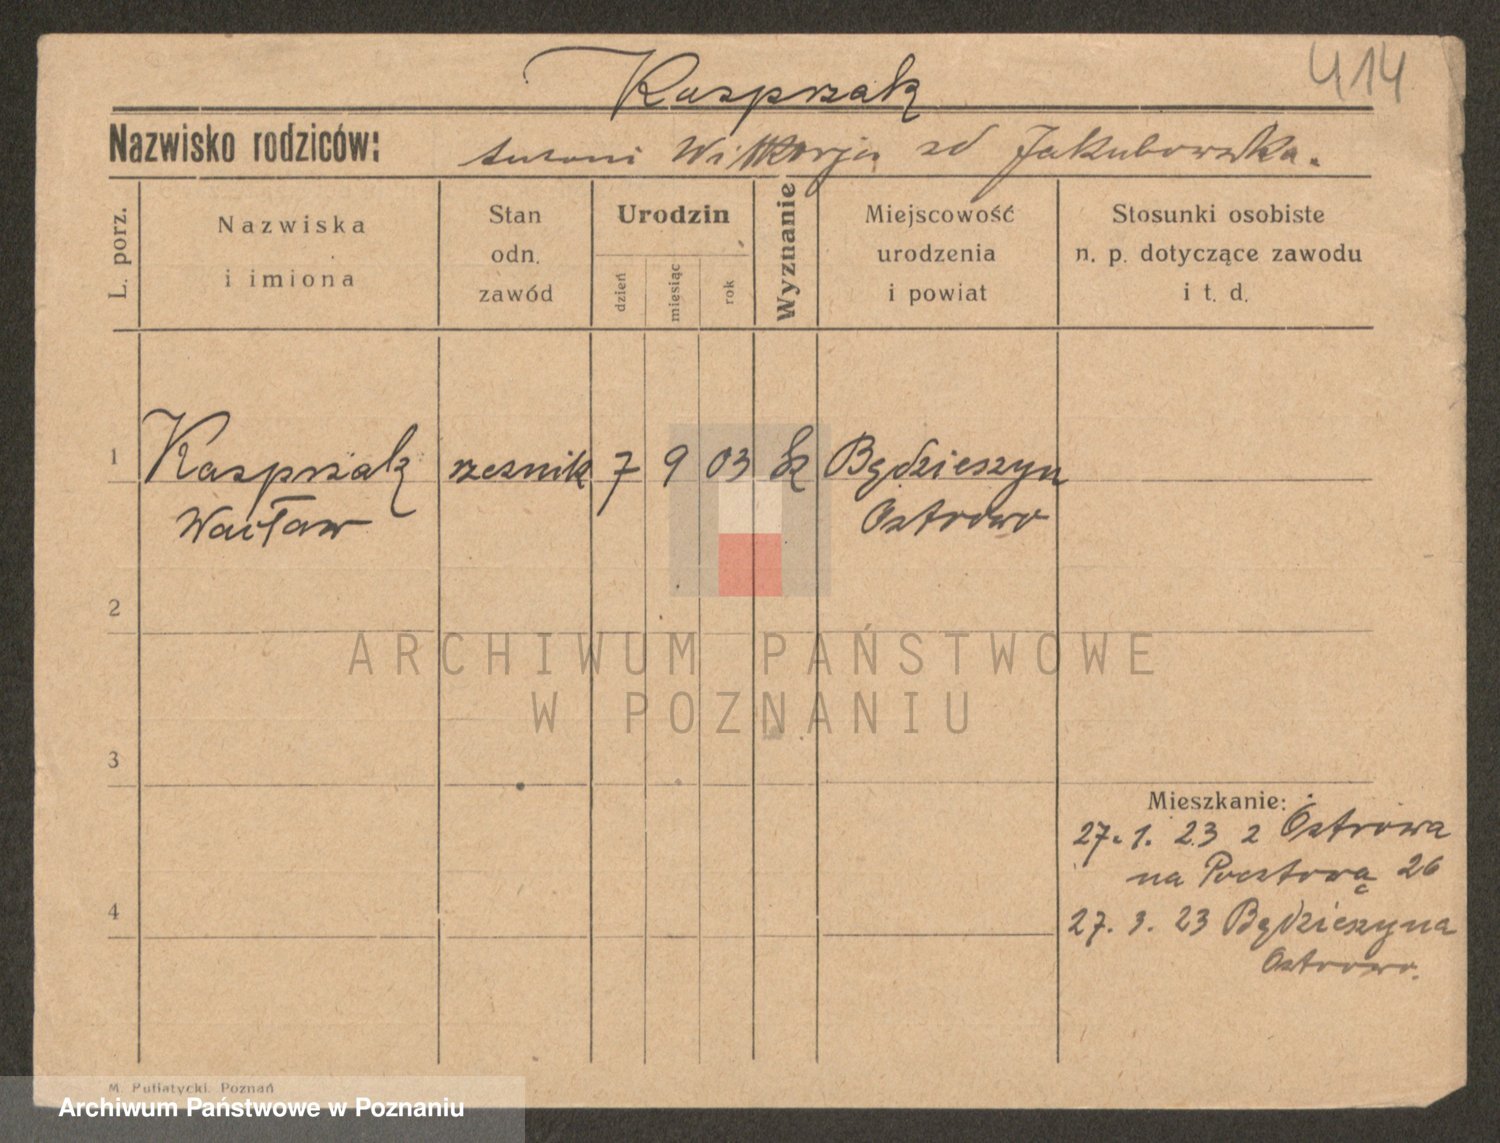 414
Kasprzak
Nazwisko rodziców: Antoni Wiktorja zd Jakubowska.
L. porz.
Nazwiska
i imiona
Stan
odn.
zawód
Urodzin
dzień
miesiąc
rok
Wyznanie
Miejscowość
urodzenia
i powiat
Stosunki osobiste
n. p. dotyczące zawodu
i t. d.
1 Kasprzak rzeznik 7 9 03 k Będzieszyn
Wacław Ostrowo
2
3
4
Mieszkanie:
27. 1. 23 z Ostrowa
na Pocztową 26
27. 3. 23 Będzieszyna
Ostrowo.
ARCHIWUM PAŃSTWOWE
W POZNANIU
M. Putiatycki, Poznań
Archiwum Państwowe w Poznaniu